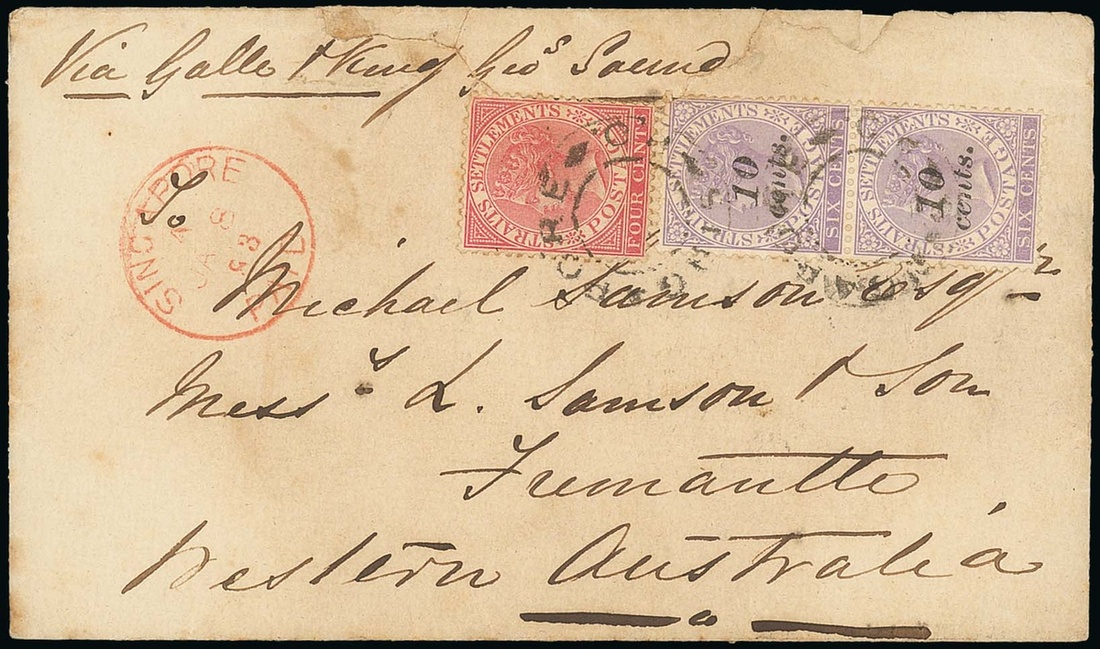 Via Galle & King Geo s Sound
STRAITS SETTLEMENTS
POSTAGE
FOUR CENTS
STRAITS SETTLEMENTS
POSTAGE
SIX CENTS
10 cents.
STRAITS SETTLEMENTS
POSTAGE
SIX CENTS
10
cents.
SINGAPORE
PAID
To
Michael Samson Esqr
Mess s L. Samson & Son
Fremantle
Western Australia